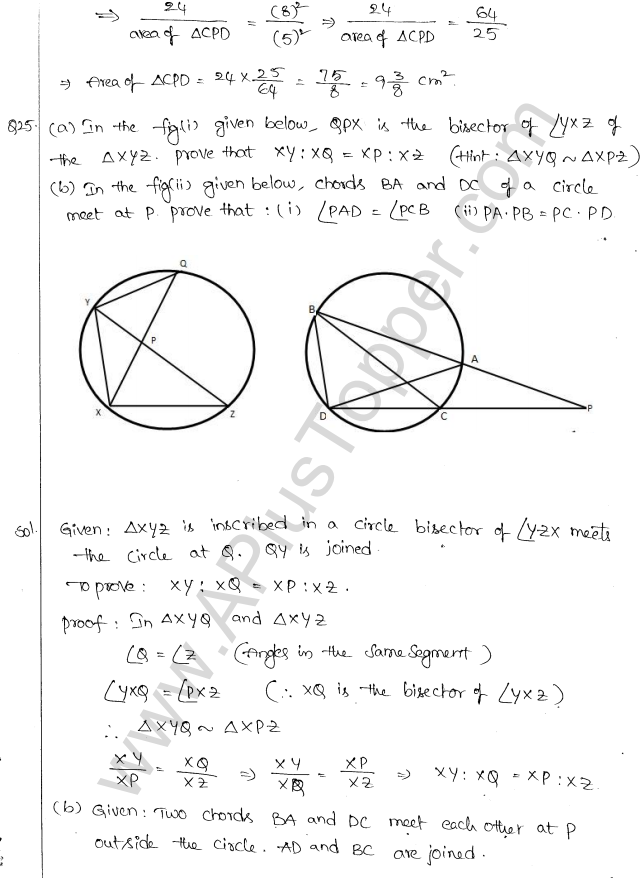 ⇒ 24 / area of ΔCPD = (8)² / (5)² ⇒ 24 / area of ΔCPD = 64 / 25
⇒ Area of ΔCPD = 24 × 25/64 = 75/8 = 9 3/8 cm².
Q25. (a) In the fig(i) given below, QPX is the bisector of ∠YXZ of
the ΔXYZ. prove that XY : XQ = XP : XZ (Hint : ΔXYQ ~ ΔXPZ)
(b) In the fig(ii) given below, chords BA and DC of a circle
meet at P. prove that : (i) ∠PAD = ∠PCB (ii) PA·PB = PC·PD.
Q
Y
P
X
Z
B
A
D
C
P
www.APlusTopper.com
Sol. Given : ΔXYZ is inscribed in a circle bisector of ∠YZX meets
the circle at Q. QY is joined.
To prove : XY : XQ = XP : XZ.
Proof : In ΔXYQ and ΔXYZ
∠Q = ∠Z (Angles in the same segment)
∠YXQ = ∠PXZ (∵ XQ is the bisector of ∠YXZ)
∴ ΔXYQ ~ ΔXPZ
XY/XP = XQ/XZ ⇒ XY/XQ = XP/XZ ⇒ XY : XQ = XP : XZ.
(b) Given : Two chords BA and DC meet each other at P
outside the circle. AD and BC are joined.